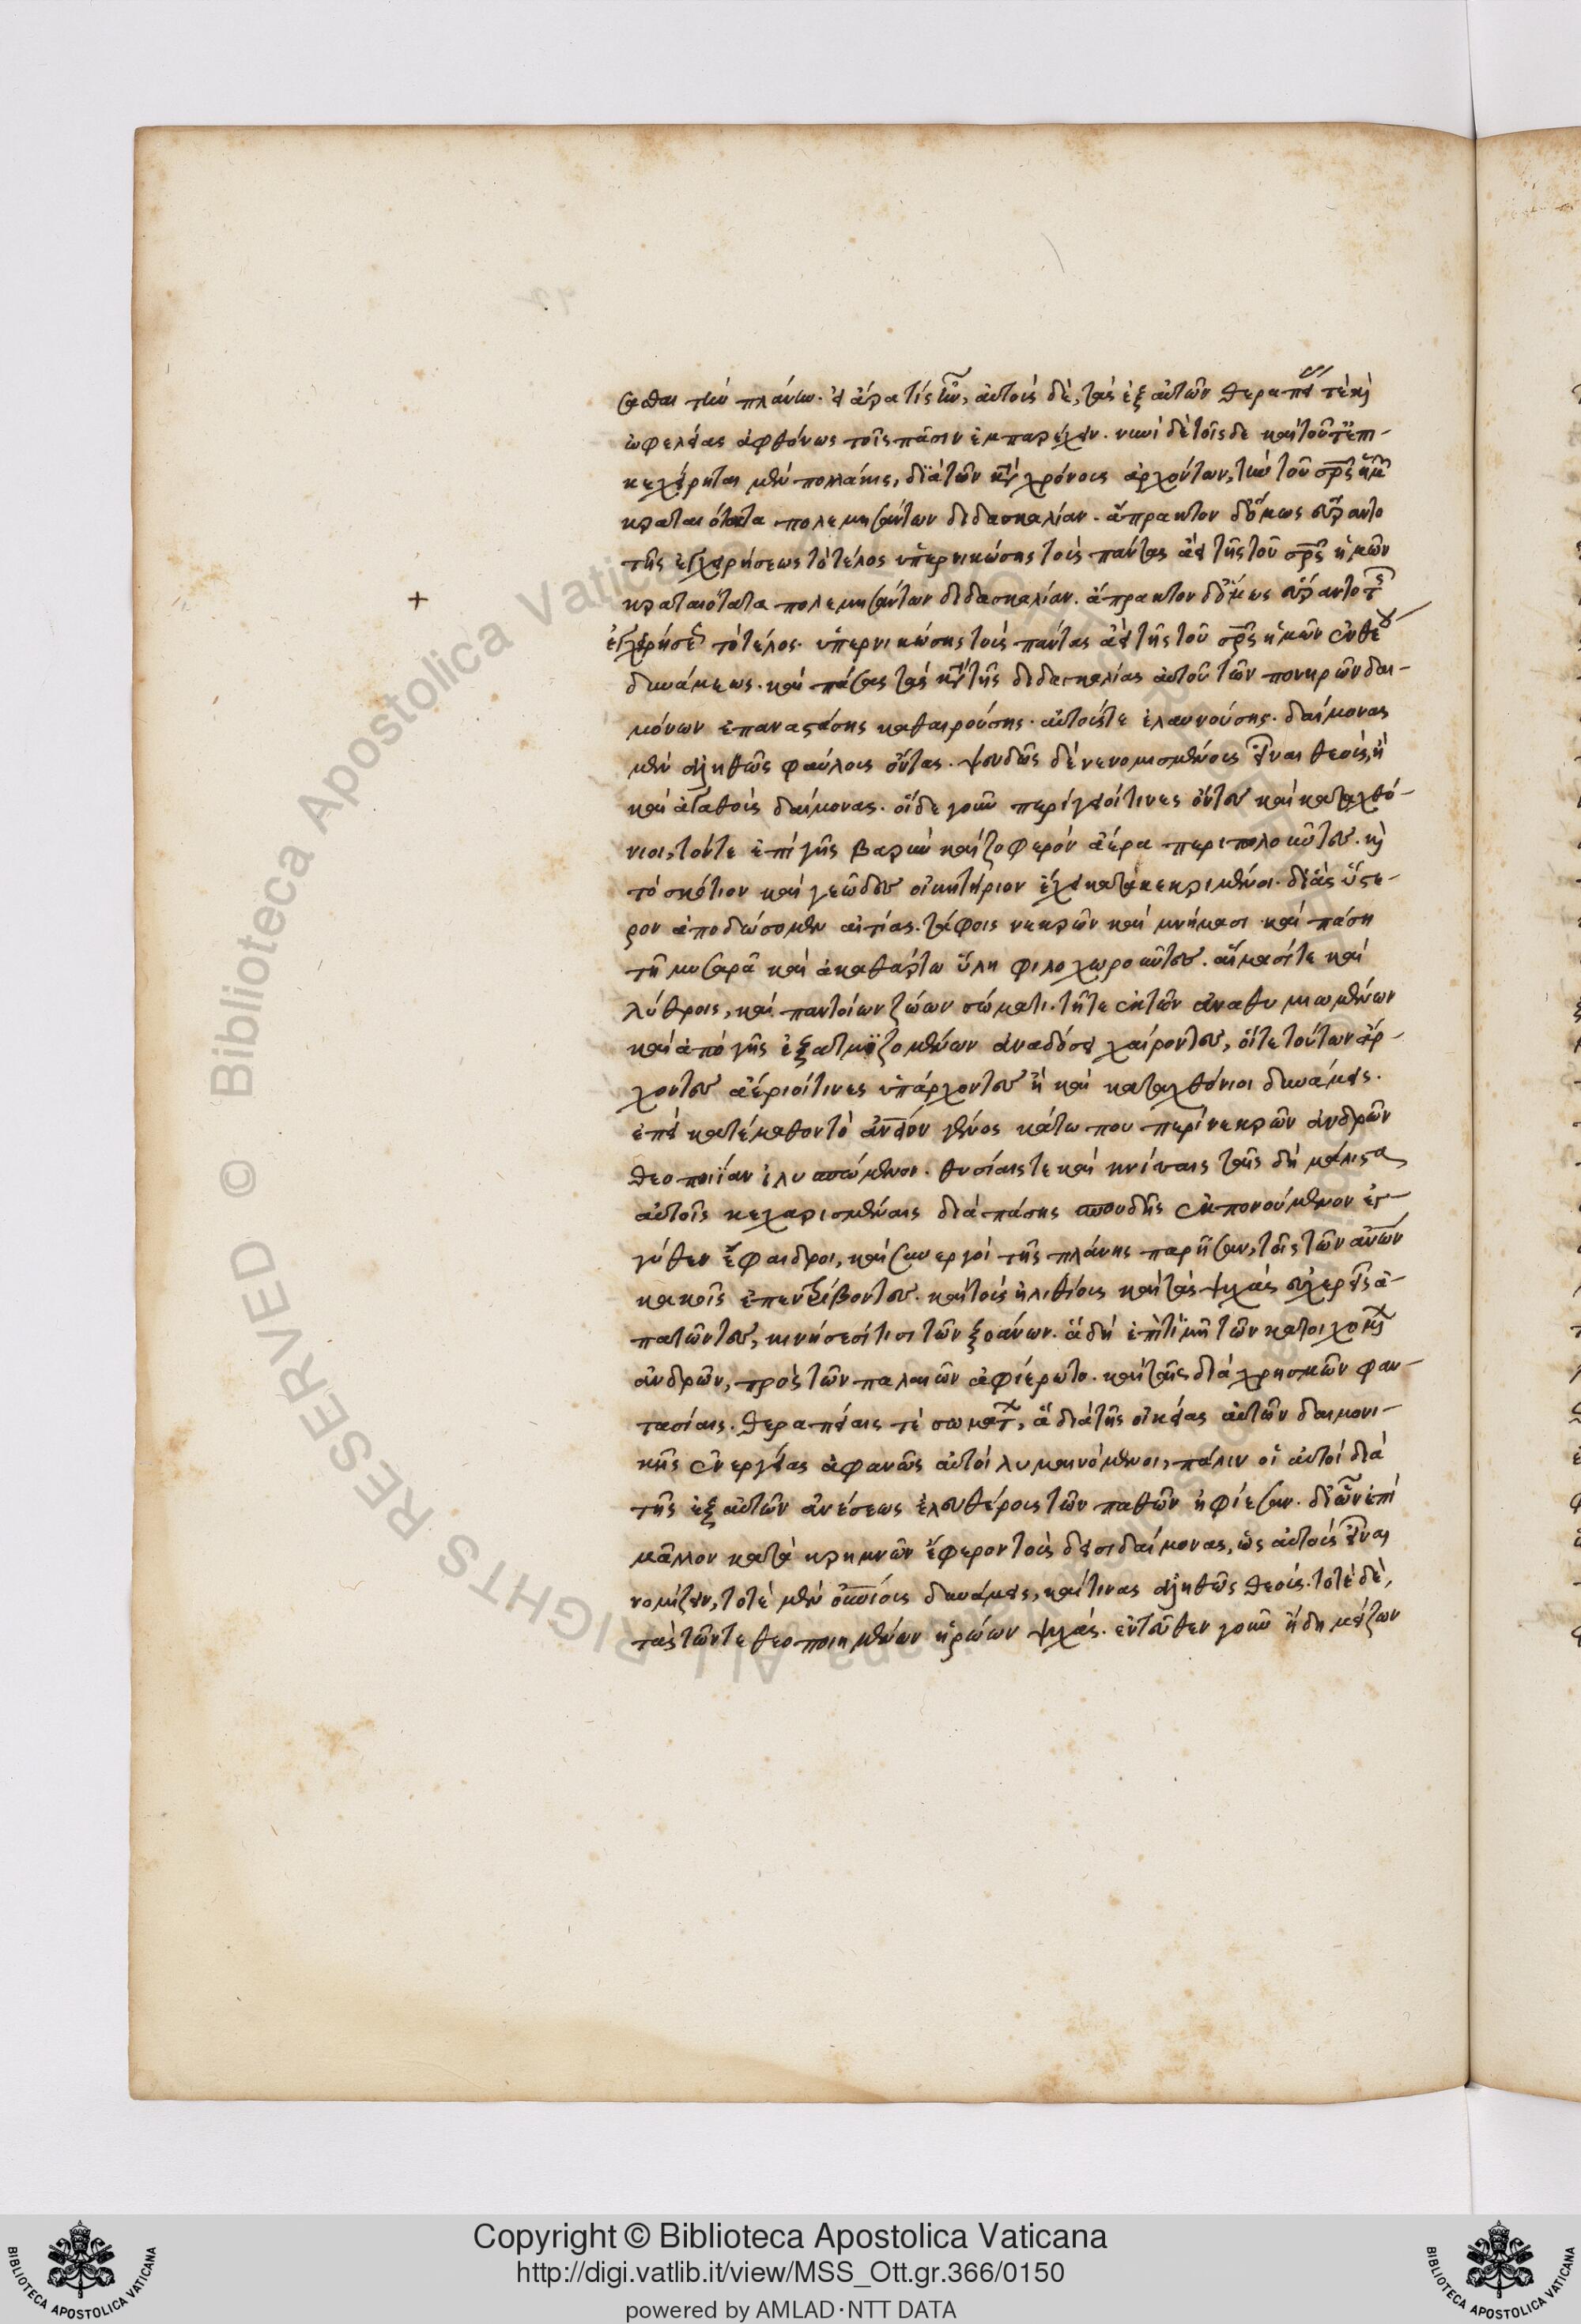 σασθαι τὴν πλάνην. εἰ ἄρα τίς ἦν, αὐτοὺς δὲ, τὰς ἐξ αὐτῶν θεραπείας τὲ καὶ
ὠφελείας ἀφθόνως τοῖς πᾶσιν ἐμπαρέχειν. νυνὶ δὲ τοῖσδε καὶ τοῦτ' ἐπι-
κεχείρηται μὲν πολλάκις, διὰ τῶν κατὰ χρόνους ἀρχόντων, τὴν τοῦ σρς ἡμῶν
κραταιότατα πολεμησάντων διδασκαλίαν. ἄπρακτον δ' ὅμως εὕραντο
τῆς ἐγχειρήσεως τὸ τέλος ὑπερνικώσης τοὺς πάντας ἀεὶ τῆς τοῦ σρς ἡμῶν
κραταιότατα πολεμησάντων διδασκαλίαν. ἄπρακτον δ' ὅμως εὕραντο τῆς
ἐγχειρήσεως τὸ τέλος. ὑπερνικώσης τοὺς πάντας ἀεὶ τῆς τοῦ σρς ἡμῶν ἐνθέου
δυνάμεως. καὶ πάσας τὰς κατὰ τῆς διδασκαλίας αὐτοῦ τῶν πονηρῶν δαι-
μόνων ἐπαναστάσης καθαιρούσης. αὐτούς τε ἐλαυνούσης. δαίμονας
μὲν ἀληθῶς φαύλους ὄντας. ψευδῶς δὲ νενομισμένους εἶναι θεοὺς, ἢ
καὶ ἀγαθοὺς δαίμονας. οἵδε γοῦν περίγειοί τινες ὄντες καὶ καταχθό-
νιοι, τόν τε ἐπὶ γῆς βαρὺν καὶ ζοφερὸν ἀέρα περιπολοῦντες. καὶ
τὸ σκότιον καὶ γεῶδες οἰκητήριον ἔχειν κατακεκριμένοι. δι' ἃς ὕστε-
ρον ἀποδώσομεν αἰτίας. τάφοις νεκρῶν καὶ μνήμασι καὶ πάση
τῆ μυσαρᾶ καὶ ἀκαθάρτω ὕλη φιλοχωροῦντες. αἵμασί τε καὶ
λύθροις, καὶ παντοίων ζώων σώματι. τῆ τε ἐκ τῶν ἀναθυμιωμένων
καὶ ἀπὸ γῆς ἐξατμιζομένων ἀναδόσει χαίροντες, οἵ τε τούτων ἄρ-
χοντες ἀέριοί τινες ὑπάρχοντες ἢ καὶ καταχθόνιοι δυνάμεις.
ἐπεὶ κατέμαθον τὸ ἀνειον γένος κάτω που περὶ νεκρῶν ἀνδρῶν
θεοποιίαν ἰλυσπώμενον. θυσίαις τε καὶ κνίσαις ταῖς δὴ μάλιστα
αὐτοῖς κεχαρισμέναις διὰ πάσης σπουδῆς ἐκπονούμενον ἐγ-
γύθεν ἔφαιδροι, καὶ συνεργοὶ τῆς πλάνης παρῆσαν, τοῖς τῶν ἀνων
κακοῖς ἐπεντρίβοντες. καὶ τοὺς ἠλιθίους καὶ τὰς ψυχὰς εὐχερεῖς ἀ-
πατῶντες, κινήσεσί τισι τῶν ξοάνων. ἃ δὴ ἐπὶ τιμῆ τῶν κατοιχομένων
ἀνδρῶν, πρὸς τῶν παλαιῶν ἀφιέρωτο. καὶ ταῖς διὰ χρησμῶν φαν-
τασίαις. θεραπείαις τὲ σωμάτων, ἃ διὰ τῆς οἰκείας αὐτῶν δαιμονι-
κῆς ἐνεργείας ἀφανῶς αὐτοὶ λυμαινόμενοι, πάλιν οἱ αὐτοὶ διὰ
τῆς ἐξ αὐτῶν ἀνέσεως ἐλευθέρους τῶν παθῶν ἠφίεσαν. δι' ὧν ἐπὶ
μᾶλλον κατὰ κρημνῶν ἔφερον τοὺς δεισιδαίμονας, ὡς αὐτοὺς εἶναι
νομίζειν, τοτὲ μὲν οὐνίους δυνάμεις, καί τινας ἀληθῶς θεούς. τοτὲ δὲ,
τὰς τῶν τε θεοποιημένων ἡρώων ψυχάς. ἐντεῦθεν γοῦν ἤδη μείζων
+
Copyright © Biblioteca Apostolica Vaticana
http://digi.vatlib.it/view/MSS_Ott.gr.366/0150
powered by AMLAD·NTT DATA